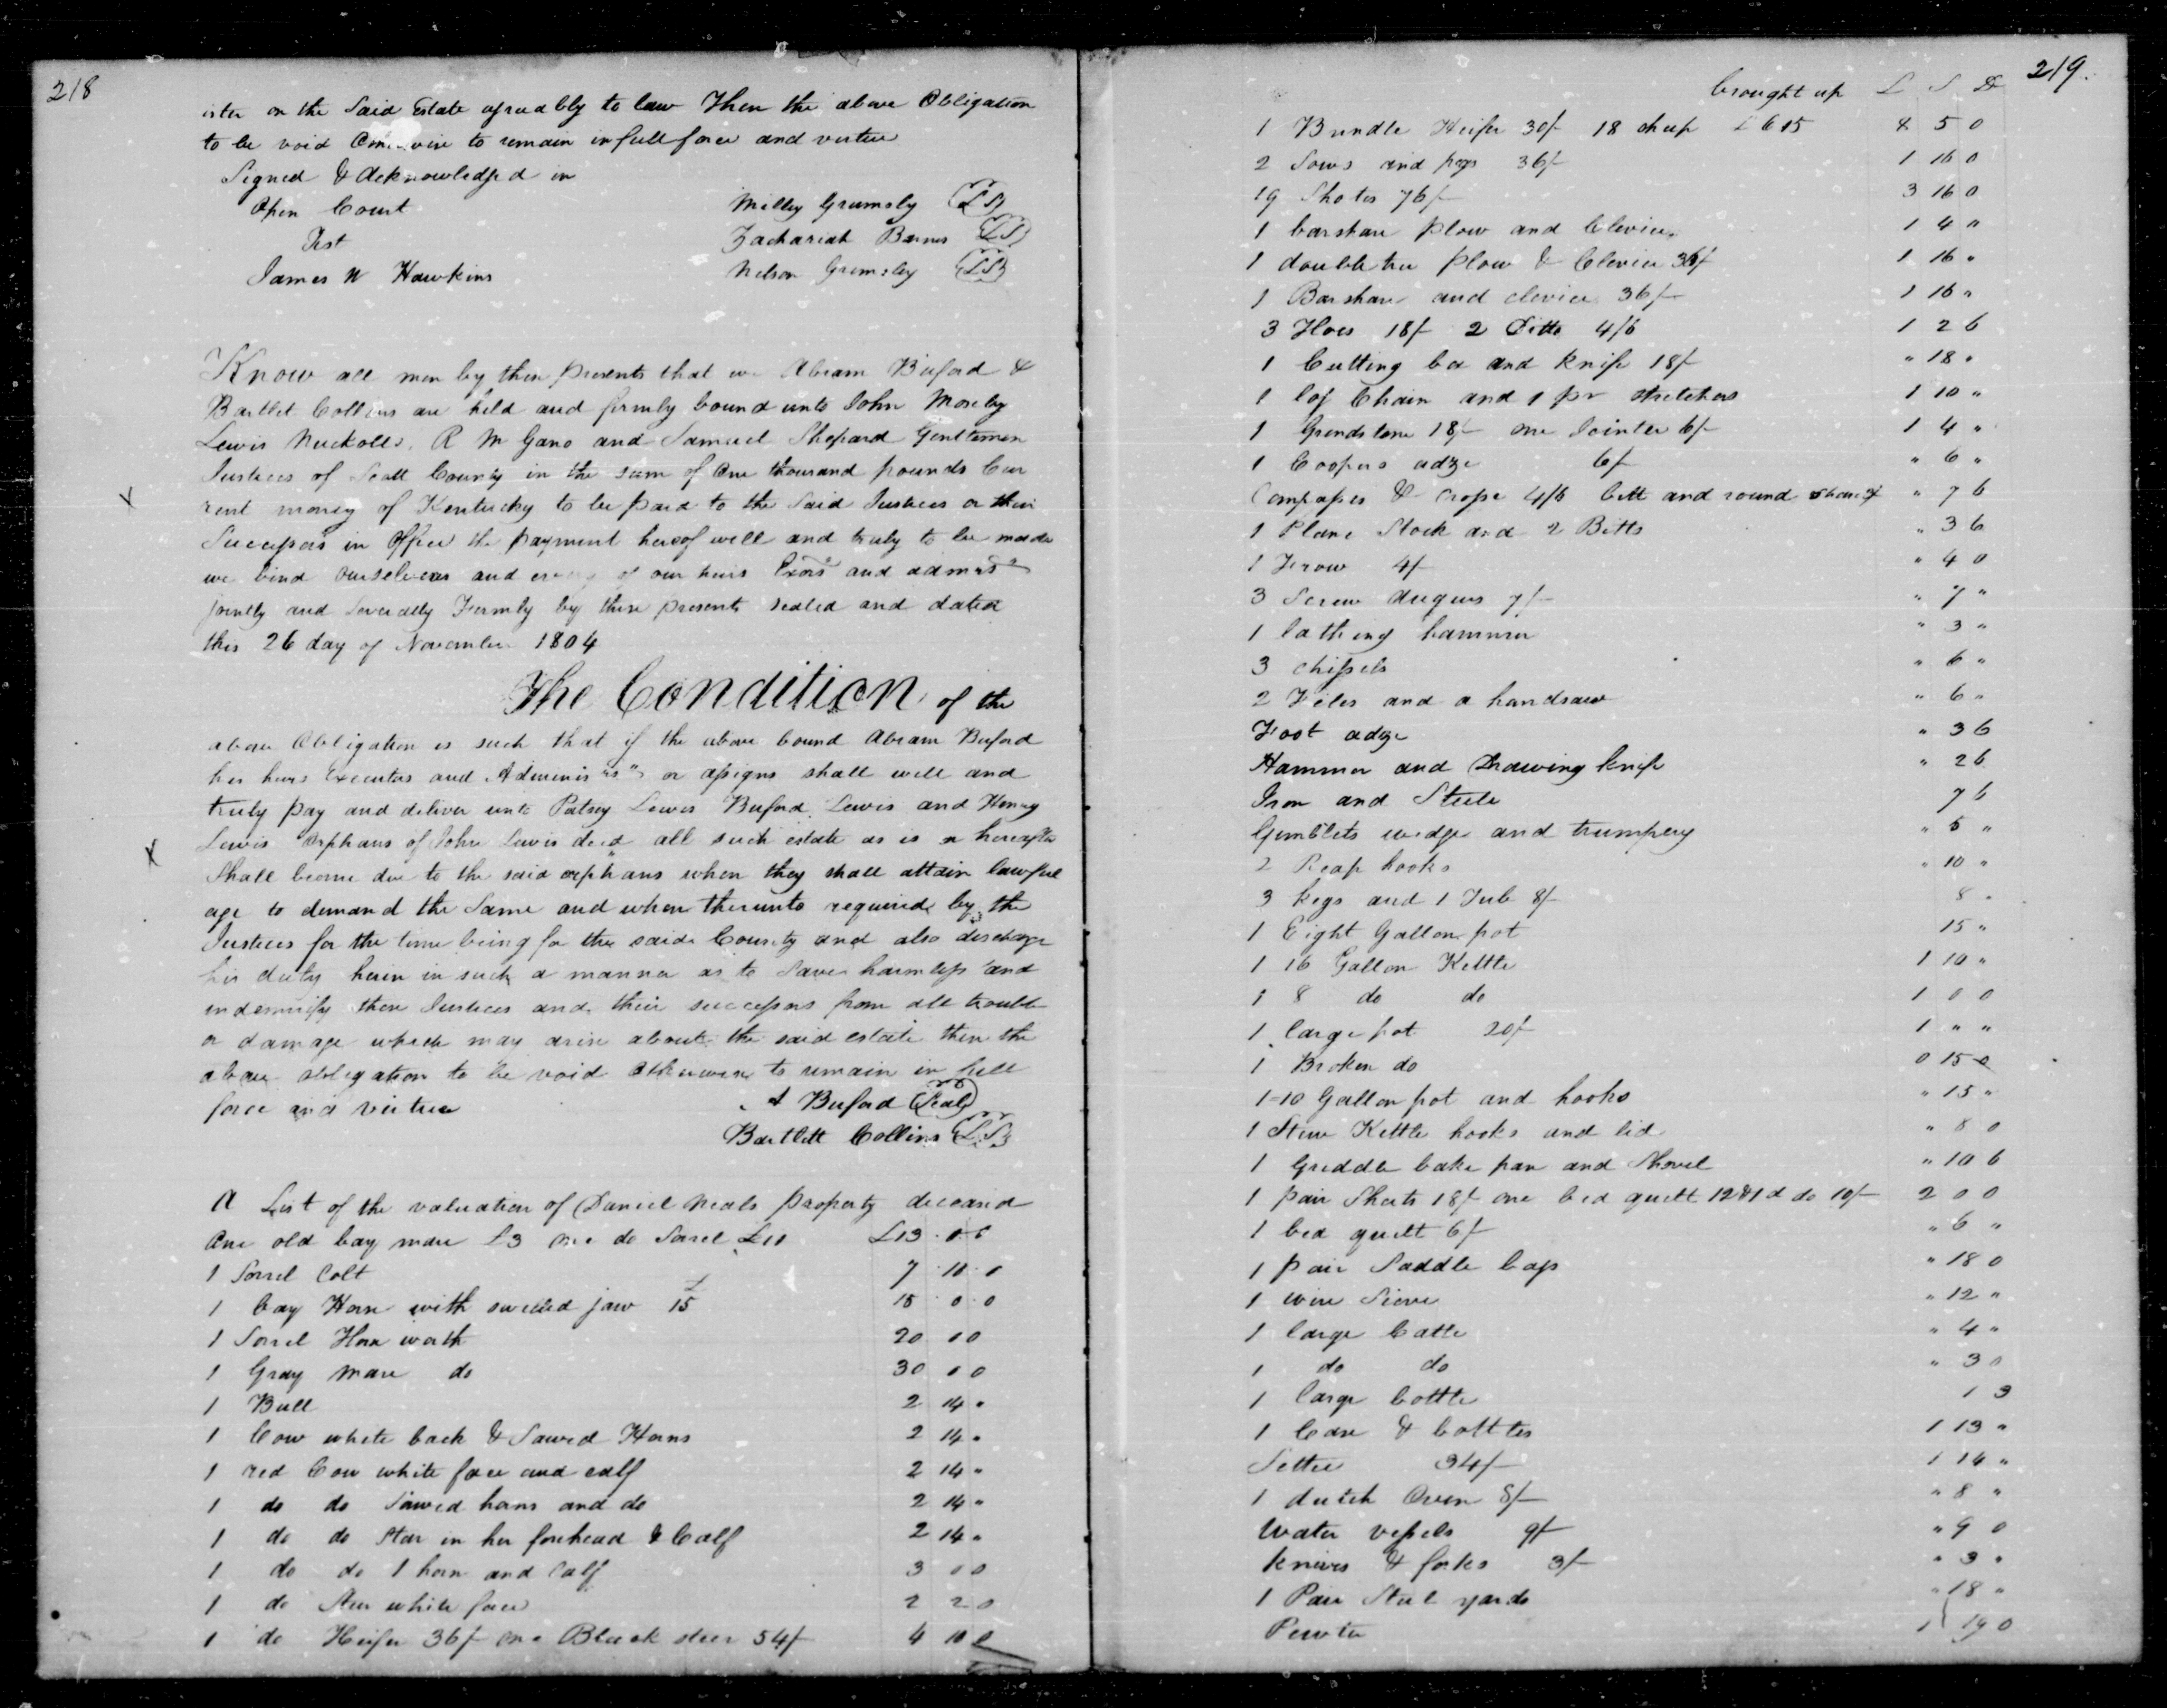 218
ister on the Said Estate agreeably to law Then the above Obligation
to be void to remain in full force and virtue
Signed & Acknowledged in
Open Court
Test
James W Hawkins
Milley Grumsly (LS)
Zachariah Barnes (LS)
Nelson Grimsley (LS)
Know all men by these presents that we Abram Buford &
Bartlet Collins are held and firmly bound unto John Moseby
Lewis Nuckolls, R M Gano and Samuel Shepard Gentlemen
Justices of Scott County in the sum of One thousand pounds Cur
rent money of Kentucky to be paid to the Said Justices or their
Successors in Office the payment hereof well and truly to be made
we bind ourselves and of our heirs Exors and admrs
jointly and Severally Firmly by these presents sealed and dated
this 26 day of November 1804
The Condition of the
above Obligation is such that if the above bound Abram Buford
his heirs Executors and or assigns shall well and
truly pay and deliver unto Patsey Lewis Buford Lewis and Henry
Lewis Orphans of John Lewis decd all such estate as is or hereafter
Shall become due to the said orphans when they shall attain lawful
age to demand the Same and when thereunto required by the
Justices for the time being for the said County and also discharge
his duty herein in such a manner as to Save harmless and
indemnify these Justices and their successors from all trouble
or damage which may arise about the said estate then the
above obligation to be void otherwise to remain in full
force and virtue
A Buford (Seal)
Bartlett Collins (LS)
A List of the valuation of Daniel Neals Property deceasd
One old bay mare £3 one do Sorrel £10 £13 . 0 0
1 Sorrel Colt 7 10 0
1 bay Horse with swelled jaw £15 15 0 0
1 Sorrel Horse worth 20 0 0
1 Gray Mare do 30 0 0
1 Bull 2 14 "
1 Cow white back & Sawed Horns 2 14 "
1 red Cow white face and calf 2 14 "
1 do do Sawed horns and do 2 14 "
1 do do Star in her forehead & Calf 2 14 "
1 do do 1 horn and Calf 3 0 0
1 do Steer white face 2 2 0
1 do Heifer 36/- one Black steer 54/- 4 10 0
219.
brought up £ S D
1 Brindle Heifer 30/- 18 sheep £6 15 8 5 0
2 Sows and pigs 36/- 1 16 0
19 Shotes 76/- 3 16 0
1 barshare plow and Clevice 1 4 "
1 double tree plow & Clevice 36/- 1 16 "
1 Barshare and clevice 36/- 1 16 "
3 Hoes 18/- 2 Ditto 4/6 1 2 6
1 Cutting box and knife 18/- " 18 "
1 log Chain and 1 pr stretchers 1 10 "
1 Grindstone 18/- one Jointer 6/- 1 4 "
1 Coopers adze 6/- " 6 "
Compasses & croze 4/6 bett and round shave " 7 6
1 Plane Stock and 2 Bitts " 3 6
1 Frow 4/- " 4 0
3 Screw Augurs 7/- " 7 "
1 lathing hammer " 3 "
3 chissels " 6 "
2 Files and a handsaw " 6 "
Foot adze " 3 6
Hammer and Drawing knife " 2 6
Iron and Steele 7 6
Gumblets wedge and trumpery " 5 "
2 Reap hooks " 10 "
3 kegs and 1 Tub 8/- 8 "
1 Eight Gallon pot 15 "
1 16 Gallon Kettle 1 10 "
1 8 do do 1 0 0
1 large pot 20/- 1 " "
1 Broken do 0 15 0
1-10 Gallon pot and hooks " 15 "
1 Stew Kettle hooks and lid " 8 0
1 Griddle bake pan and Shovel " 10 6
1 pair Sheets 18/- one bed quilt 12 & 1 d do 10/- 2 0 0
1 bed quilt 6/- " 6 "
1 pair Saddle bags " 18 0
1 wire Sieve " 12 "
1 large " 4 "
1 do do " 3 0
1 large bottle 1 3
1 Case & bottles 1 13 "
Settee 34/- 1 14 "
1 dutch Oven 8/- " 8 "
Water vessels 9/- " 9 0
knives & forks 3/- " 3 "
1 Pair Steel yards " 18 "
Pewter 1 19 0